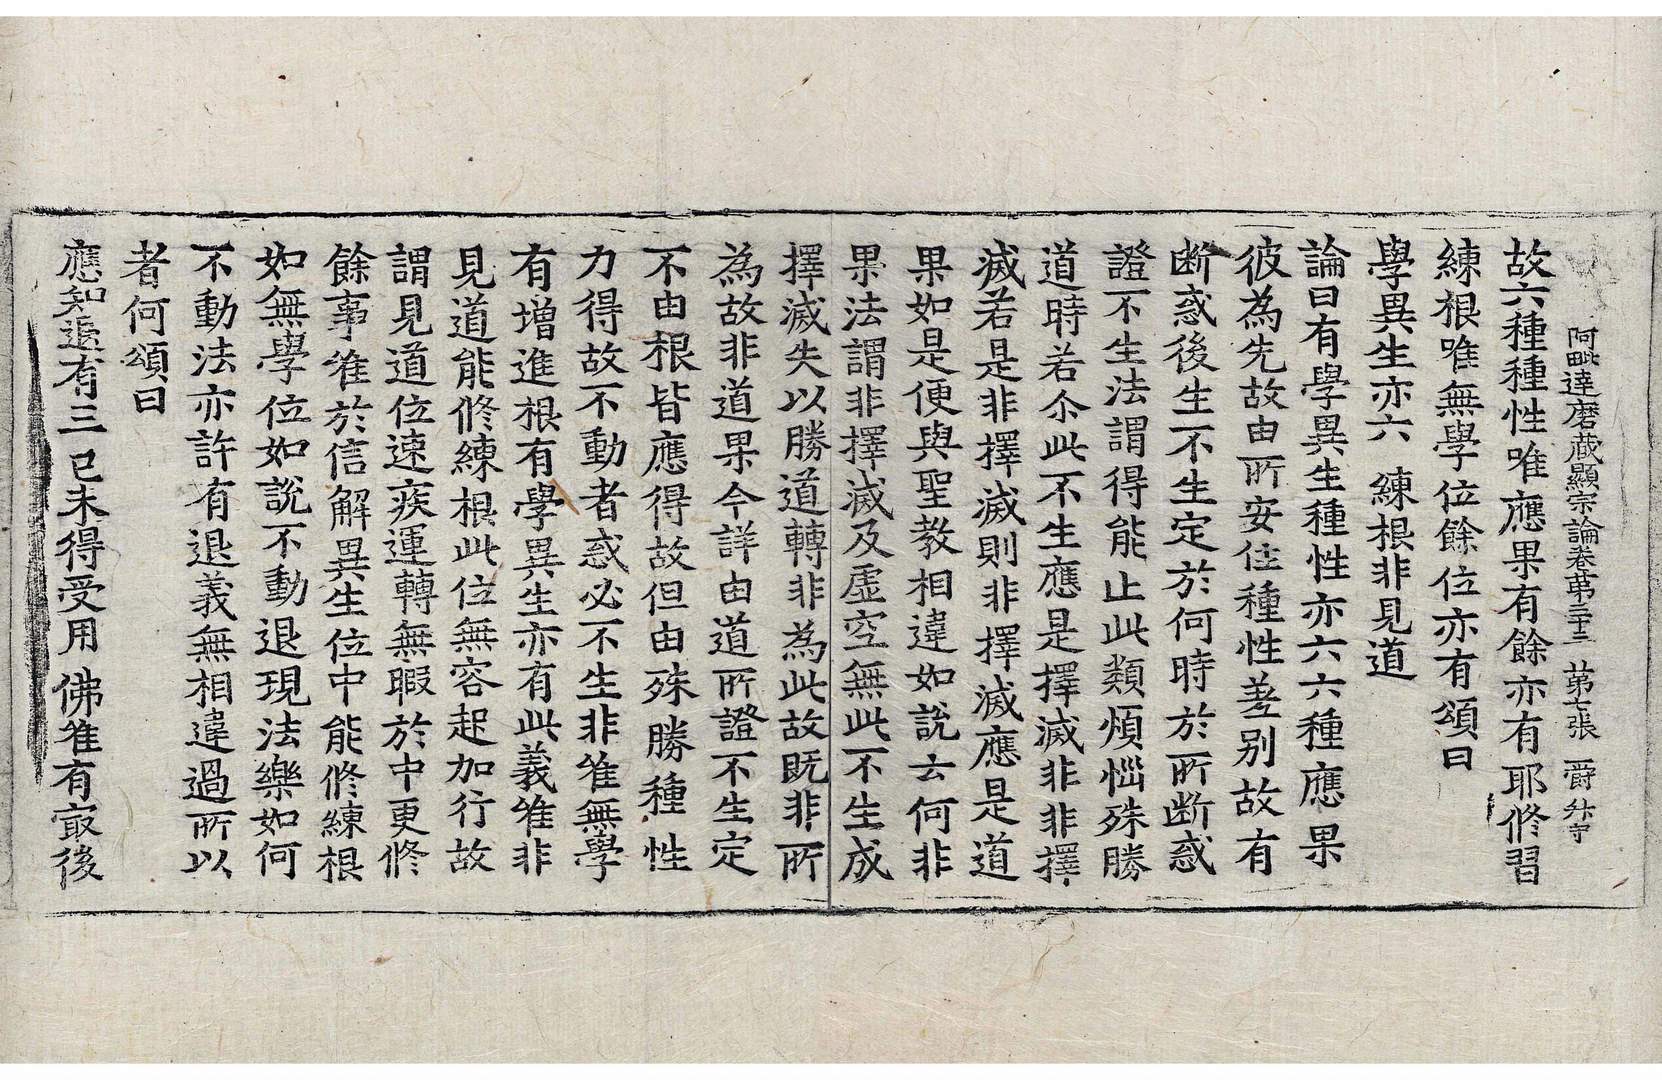 阿毗達磨藏顯宗論卷第三十三 第七張 爵
故六種種性唯應果有餘亦有耶修習
練根唯無學位餘位亦有頌曰
學異生亦六 練根非見道
論曰有學異生種性亦六六種應果
彼為先故由所安住種性差別故有
断惑後生不生定於何時於所断惑
證不生法謂得能止此類煩惱殊勝
道時若尒此不生應是擇滅非非擇
滅若是非擇滅則非擇滅應是道
果如是便與聖教相違如說云何非
果法謂非擇滅及虛空無此不生成
擇滅失以勝道轉非為此故既非所
為故非道果今詳由道所證不生定
不由根皆應得故但由殊勝種性
力得故不動者惑必不生非唯無學
有增進根有學異生亦有此義唯非
見道能修練根此位無容起加行故
謂見道位速疾運轉無暇於中更修
餘事唯於信解異生位中能修練根
如無學位如說不動退現法樂如何
不動法亦許有退義無相違過所以
者何頌曰
應知退有三 已未得受用 佛唯有㝡後